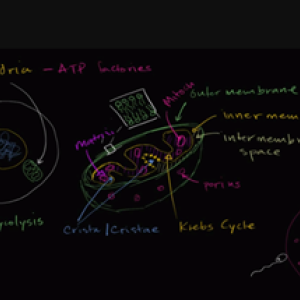 dria - ATP factories
outer membrane
Matrix
inner mem
intermembr
space
porins
ycolysis
Crista/Cristae
Krebs Cycle